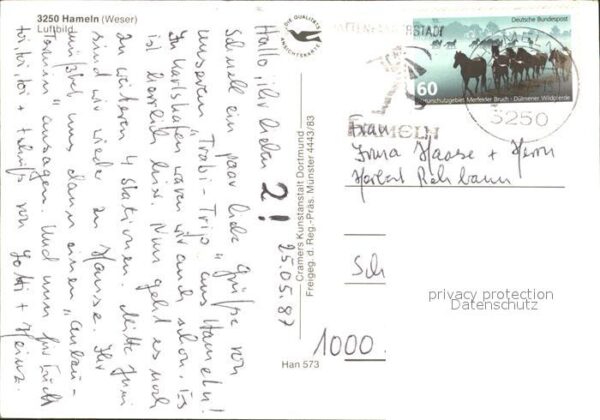 3250 Hameln (Weser)
Luftbild
Hallo, ihr lieben 2! 25.05.87
Schnell ein paar liebe Grüße von
unserem "Trabi-Trip" aus Hameln!
In Karlshafen waren wir auch schon. Es
ist herrlich hier. Nun geht es noch
zu weiteren 4 Stationen. Mitte Juni
sind wir wieder zu Hause. Ihr
müßtet uns dann einen
Termin" ansagen. Und nun für Euch
toi, toi, toi + tschüß von + Heinz.
DIE QUALITÄTS
ANSICHTSKARTE
Cramers Kunstanstalt Dortmund
Freigeg. d. Reg.-Präs. Münster 4443/83
Han 573
RATTENFÄNGERSTADT
HAMELN
3250
Deutsche Bundespost
60
Naturschutzgebiet Merfelder Bruch · Dülmener Wildpferde
Frau
Irma Haase + Herrn
Herbert Rehbann
Sch
1000
privacy protection
Datenschutz